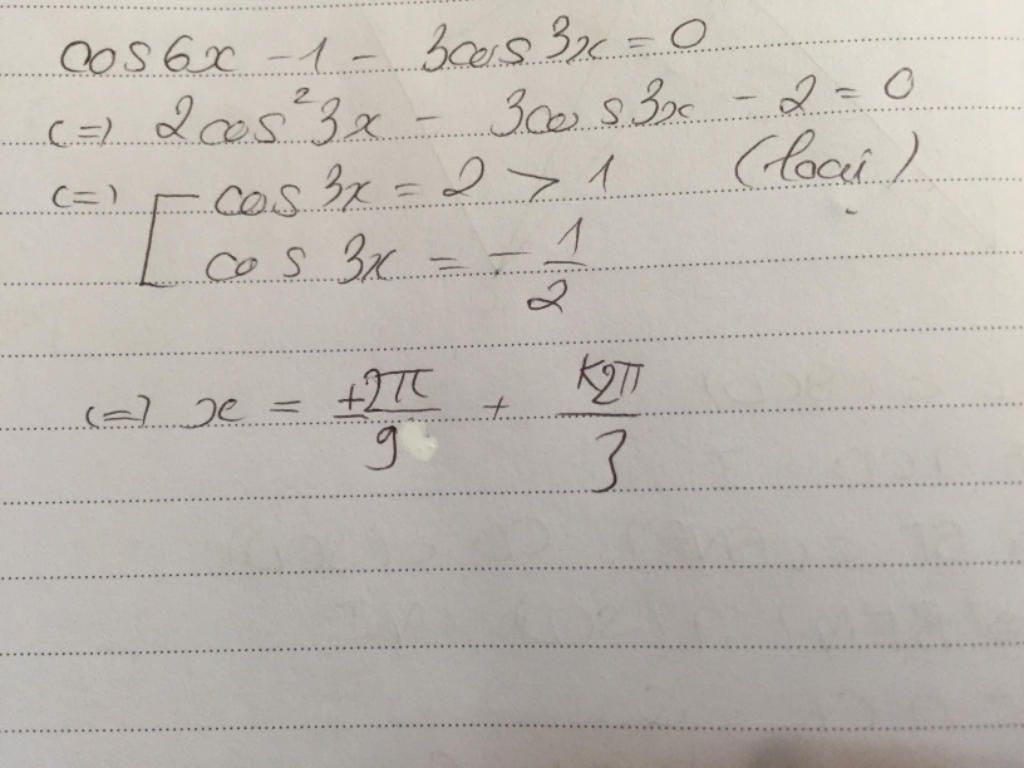 cos6x - 1 - 3cos3x = 0
(=) 2cos²3x - 3cos3x - 2 = 0
(=) [ cos 3x = 2 > 1 (loại)
cos 3x = -1/2
(=) x = ±2π/9 + k2π/3